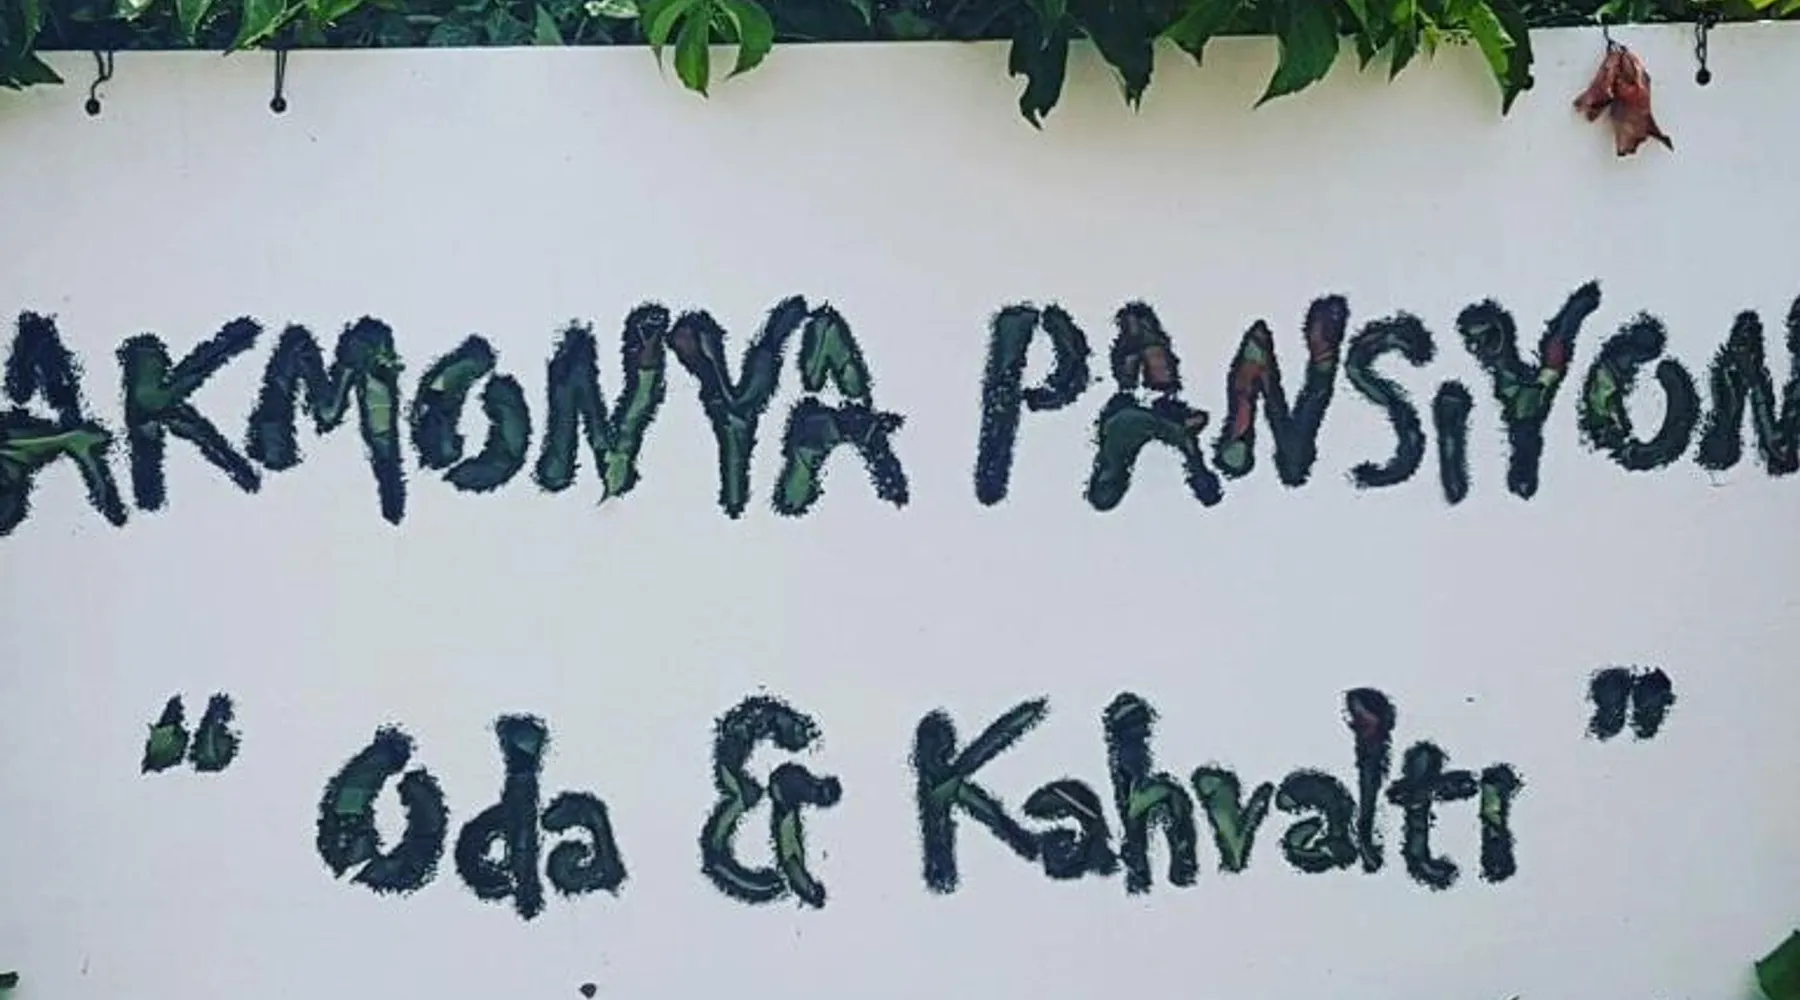 AKMONYA PANSiYON
“ Oda & Kahvaltı ”